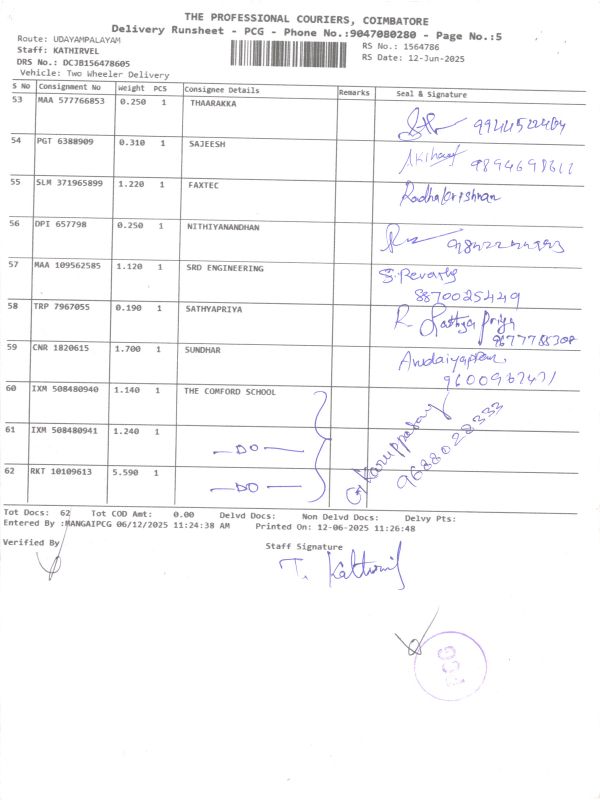 THE PROFESSIONAL COURIERS, COIMBATORE
Delivery Runsheet - PCG - Phone No.:9047080280 - Page No.:5
Route: UDAYAMPALAYAM
RS No.: 1564786
Staff: KATHIRVEL
RS Date: 12-Jun-2025
DRS No.: DCJB156478605
Vehicle: Two Wheeler Delivery
S No Consignment No Weight PCS Consignee Details Remarks Seal & Signature
53 MAA 577766853 0.250 1 THAARAKKA
54 PGT 6388909 0.310 1 SAJEESH
9894698611
55 SLM 371965899 1.220 1 FAXTEC Radhakrishnan
56 DPI 657798 0.250 1 NITHIYANANDHAN
57 MAA 109562585 1.120 1 SRD ENGINEERING S. Revathy
8870025449
58 TRP 7967055 0.190 1 SATHYAPRIYA R Sathya Priya
9677755308
59 CNR 1820615 1.700 1 SUNDHAR Andaiyappan
9600967471
60 IXM 508480940 1.140 1 THE COMFORD SCHOOL
61 IXM 508480941 1.240 1 —DO—
9688028333
62 RKT 10109613 5.590 1 —DO—
Tot Docs: 62 Tot COD Amt: 0.00 Delvd Docs: Non Delvd Docs: Delvy Pts:
Entered By :MANGAIPCG 06/12/2025 11:24:38 AM Printed On: 12-06-2025 11:26:48
Verified By
Staff Signature
T. Kathirvel